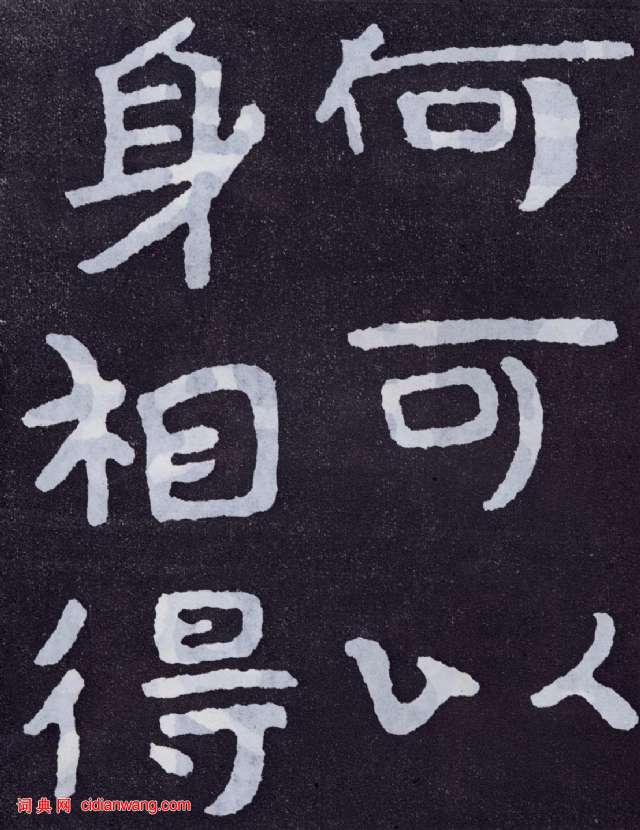 何可以
身相得
词典网 cidianwang.com